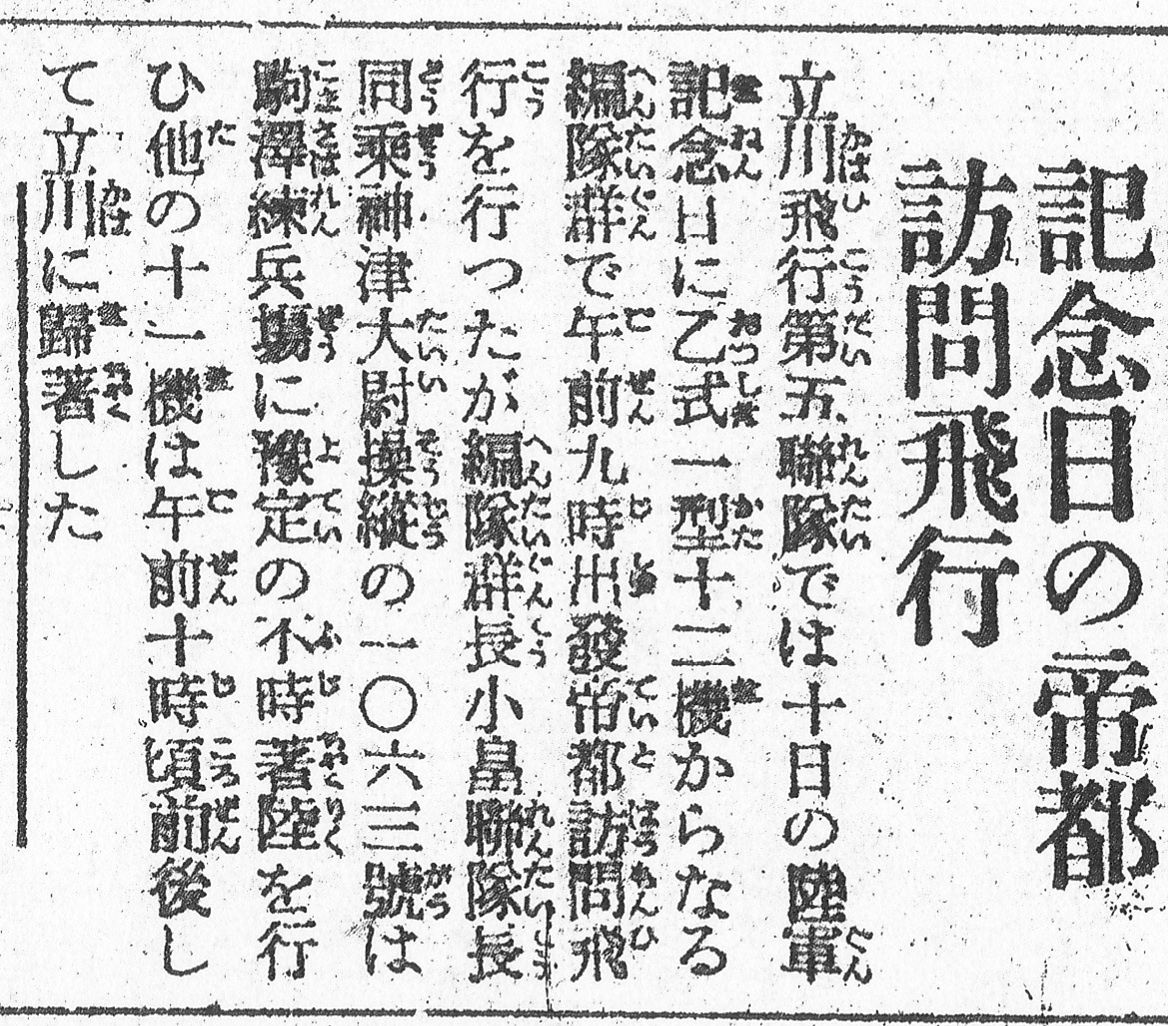 記念日の帝都
訪問飛行
立川飛行第五聯隊では十日の陸軍
記念日に乙式一型十二機からなる
編隊群で午前九時出發帝都訪問飛
行を行つたが編隊群長小畠聯隊長
同乘神津大尉操縱の一〇六三號は
駒澤練兵場に豫定の不時著陸を行
ひ他の十一機は午前十時頃前後し
て立川に歸著した